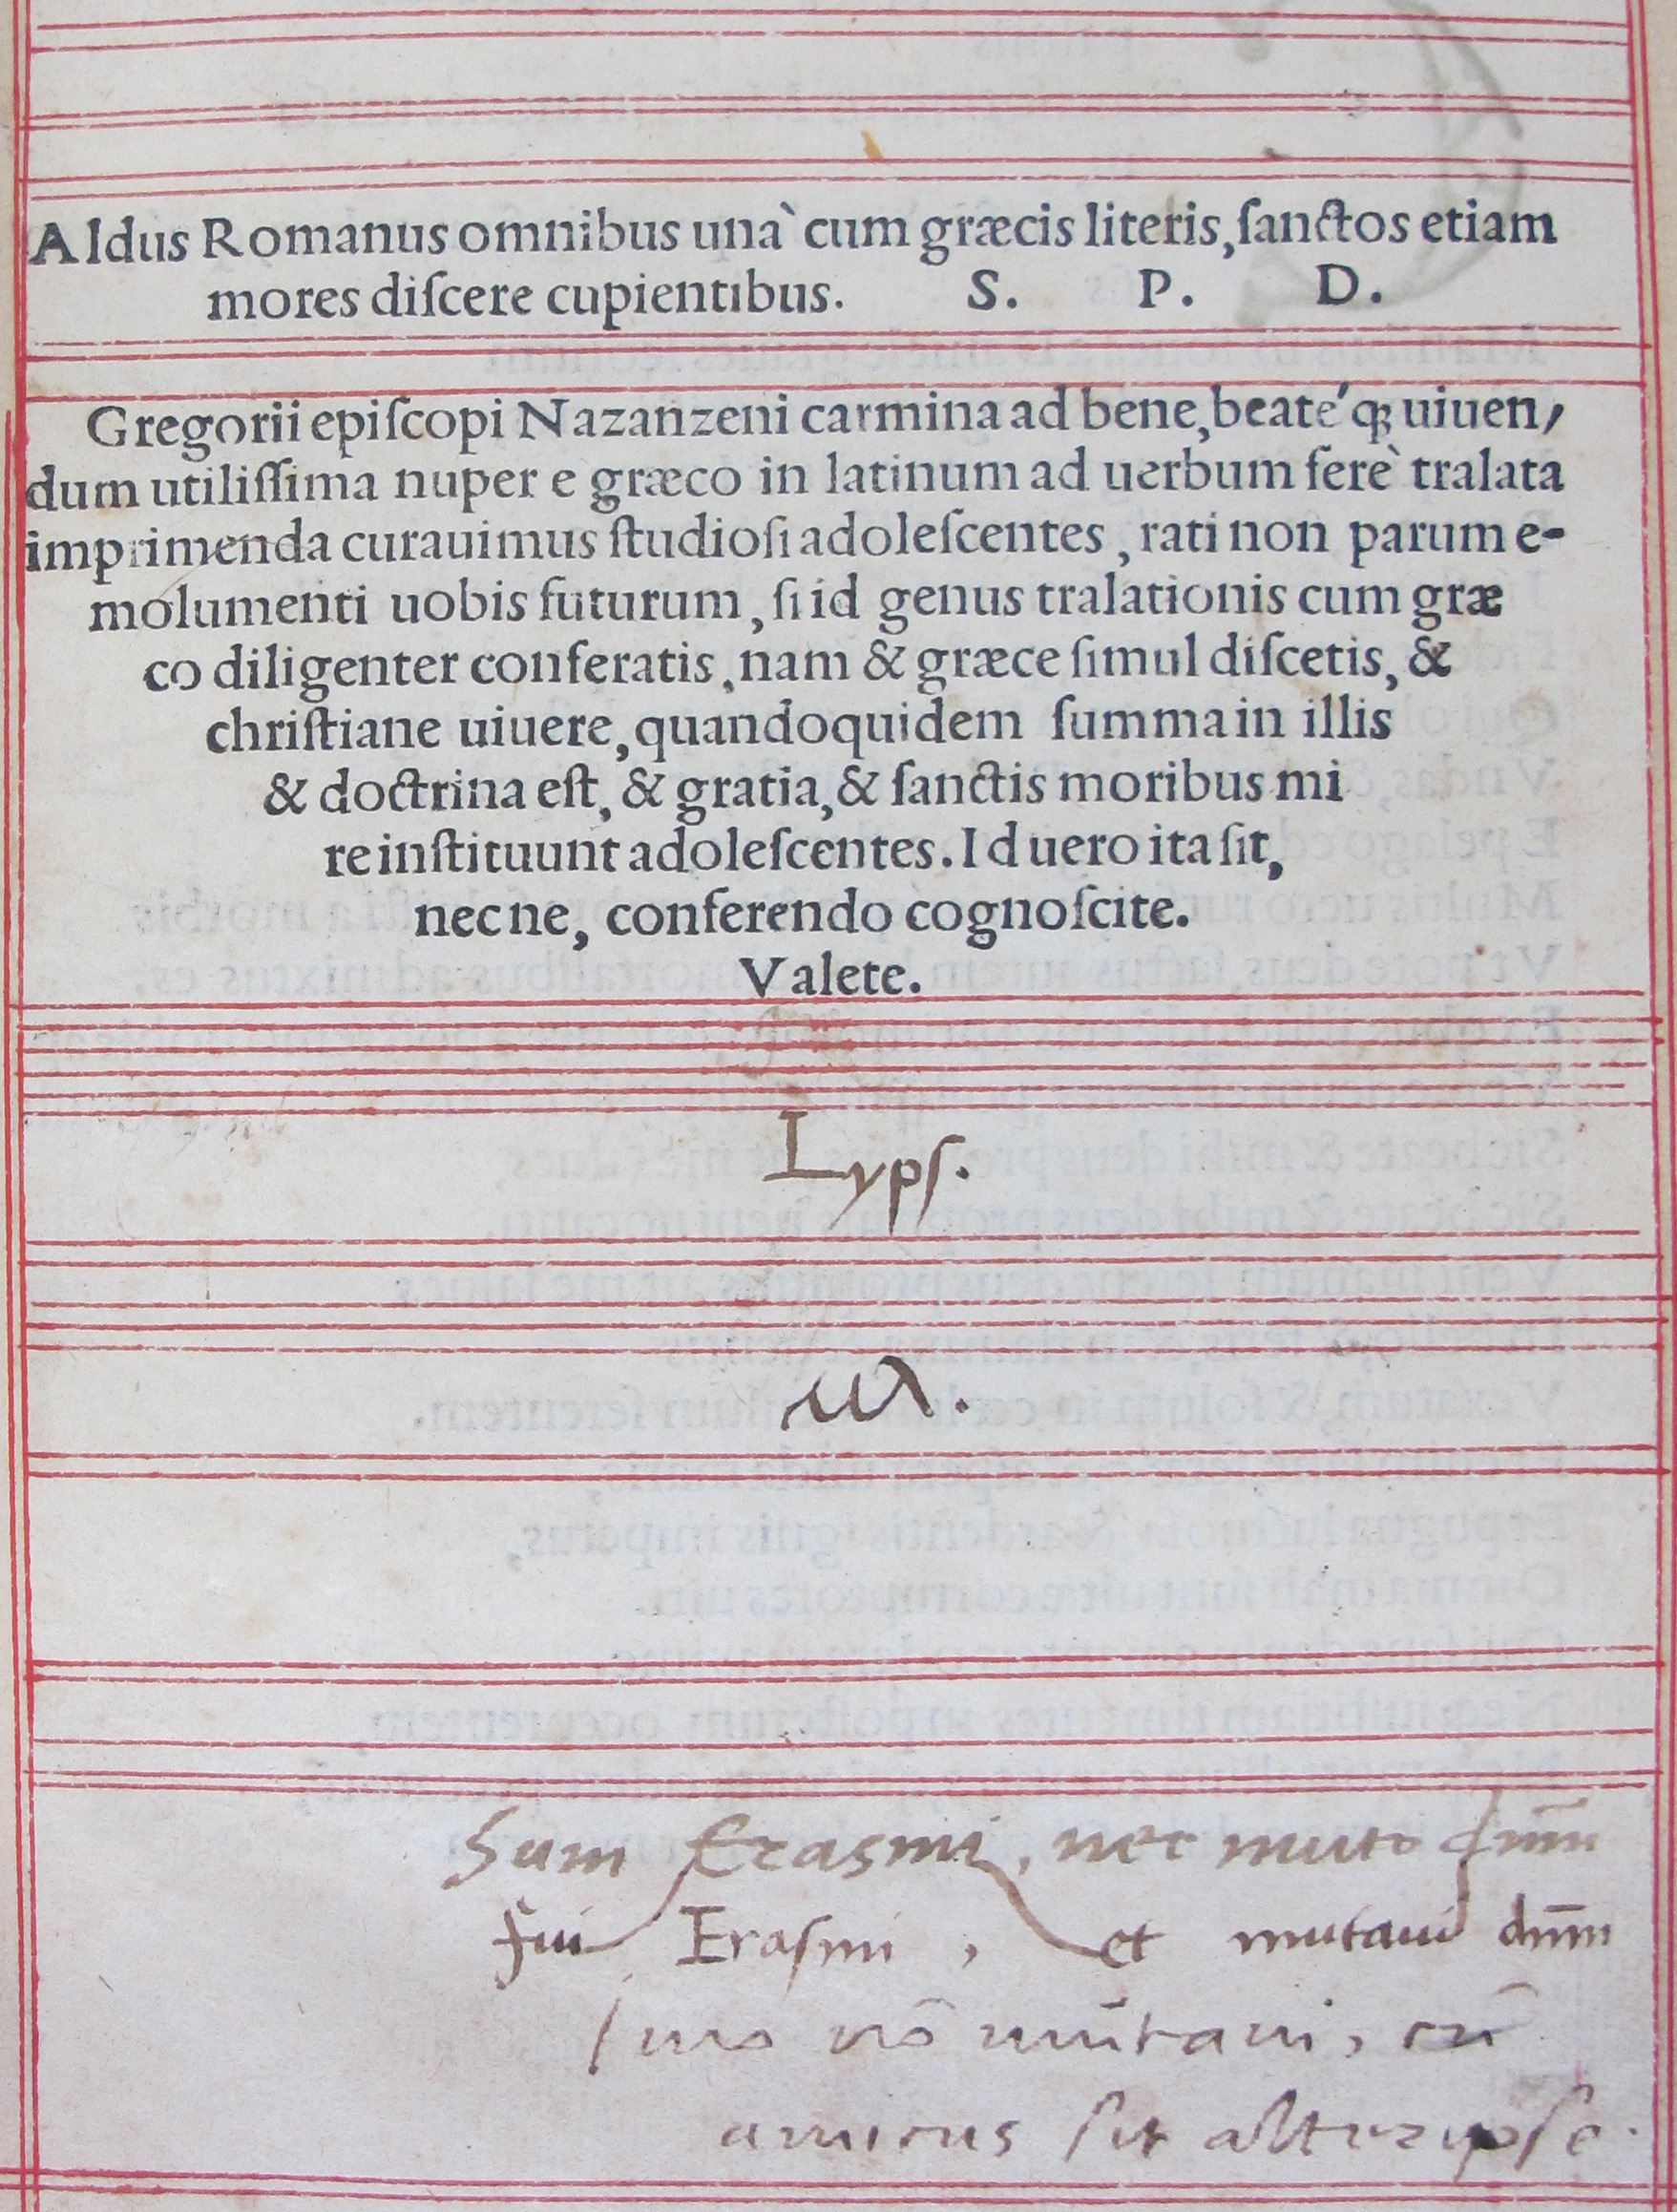 Aldus Romanus omnibus unà cum græcis literis, ſanctos etiam
mores diſcere cupientibus. S. P. D.
Gregorii epiſcopi Nazanzeni carmina ad bene, beate´qꝫ uiuen/
dum utiliſſima nuper e græco in latinum ad uerbum ferè tralata
imprimenda curauimus ſtudioſi adoleſcentes, rati non parum e-
molumenti uobis futurum, ſi id genus tralationis cum græ
co diligenter conferatis, nam & græce ſimul diſcetis, &
chriſtiane uiuere, quandoquidem ſumma in illis
& doctrina eſt, & gratia, & ſanctis moribus mi
re inſtituunt adoleſcentes. Id uero ita ſit,
necne, conferendo cognoſcite.
Valete.
Lypſ.
Sum Erasmi, nec muto dñm
fui Eraſmi, et mutaui dñm
Imo nō mutaui, cū
amicus ſit alter ipſe.